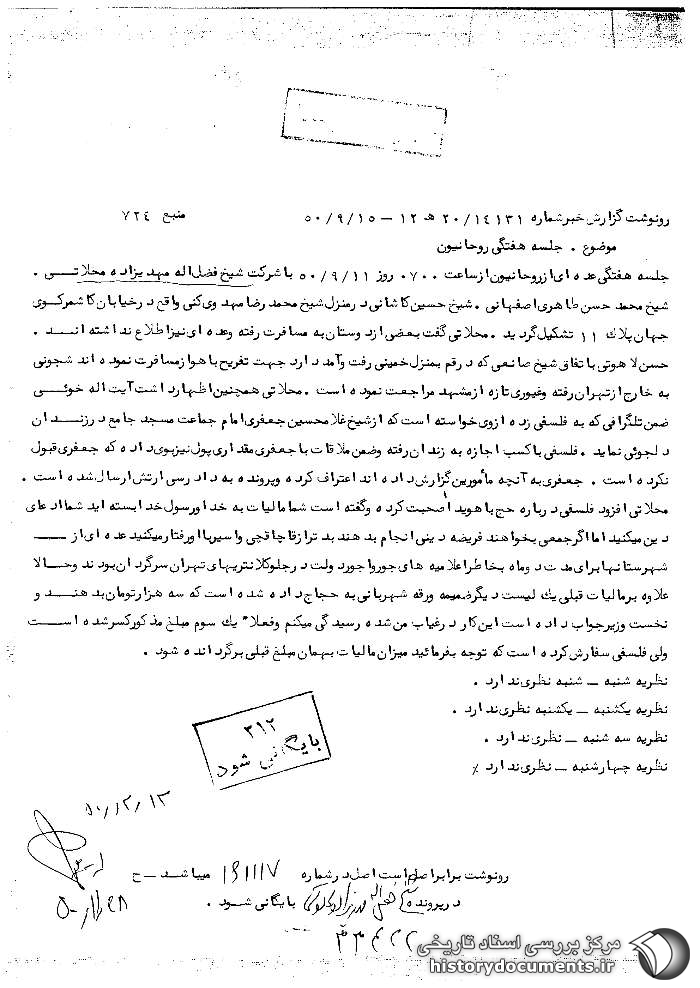 رونوشت گزارش خبر شماره ۲۰/۱۴۱۳۱ هـ ۱۲ – ۵۰/۹/۱۵ منبع ۷۲۴
موضوع . جلسه هفتگی روحانیون
جلسه هفتگی عده ای از روحانیون از ساعت ۰۷۰۰ روز ۵۰/۹/۱۱ با شرکت شیخ فضل اله مهدیزاده محلاتی .
شیخ محمد حسن طاهری اصفهانی . شیخ حسین کاشانی در منزل شیخ محمد رضا مهدوی کنی واقع در خیابان کاشمر کوی
جهان پلاک ۱۱ تشکیل گردید . محلاتی گفت بعضی از دوستان به مسافرت رفته وعده ای نیز اطلاع نداشته اند .
حسن لاهوتی با تفاق شیخ صانعی که در قم بمنزل خمینی رفت وآمد دارد جهت تفریح باهواز مسافرت نموده اند شجونی
به خارج از تهران رفته وغیوری تازه از مشهد مراجعت نموده است . محلاتی همچنین اظهار داشت آیت اله خوئی
ضمن تلگرافی که به فلسفی زده ازوی خواسته است که از شیخ غلامحسین جعفری امام جماعت مسجد جامع در زندان
دلجوئی نماید . فلسفی با کسب اجازه به زندان رفته وضمن ملاقات با جعفری مقداری پول نیز بوی داده که جعفری قبول
نکرده است . جعفری به آنچه مأمورین گزارش داده اند اعتراف کرده وپرونده به دادرسی ارتش ارسال شده است .
محلاتی افزود فلسفی درباره حج با هویدا صحبت کرده وگفته است شما مالیات به خدا ورسول خدا بسته اید شما ادعای
دین میکنید اما اگر جمعی بخواهند فریضه دینی انجام بدهند بدتر از قاچاقچی واسیر باآنها رفتار میکنید عده ای از
شهرستانها برای مدت دو ماه بخاطر اعلامیه های جورواجور دولت در جلو کلانتریهای تهران سرگردان بودند وحالا
علاوه بر مالیات قبلی یک لیست دیگر ضمیمه ورقه شهربانی به حجاج داده شده است که سه هزار تومان بدهند و
نخست وزیر جواب داده است این کار در غیاب من شده رسیدگی میکنم وفعلا" یک سوم مبلغ مذکور کسر شده است
ولی فلسفی سفارش کرده است که توجه بفرمائید میزان مالیات بهمان مبلغ قبلی برگردانده شود .
نظریه شنبه – شنبه نظری ندارد .
نظریه یکشنبه – یکشنبه نظری ندارد .
نظریه سه شنبه – نظری ندارد .
نظریه چهارشنبه – نظری ندارد ٪
۳۱۲
بایگانی شود
۵۰/۱۲/۱۳
رونوشت برابر اصل است اصل در شماره ۱۶۱۱۱۷ میباشد – ح
در پرونده بایگانی شود .
مرکز بررسی اسناد تاریخی
historydocuments.ir